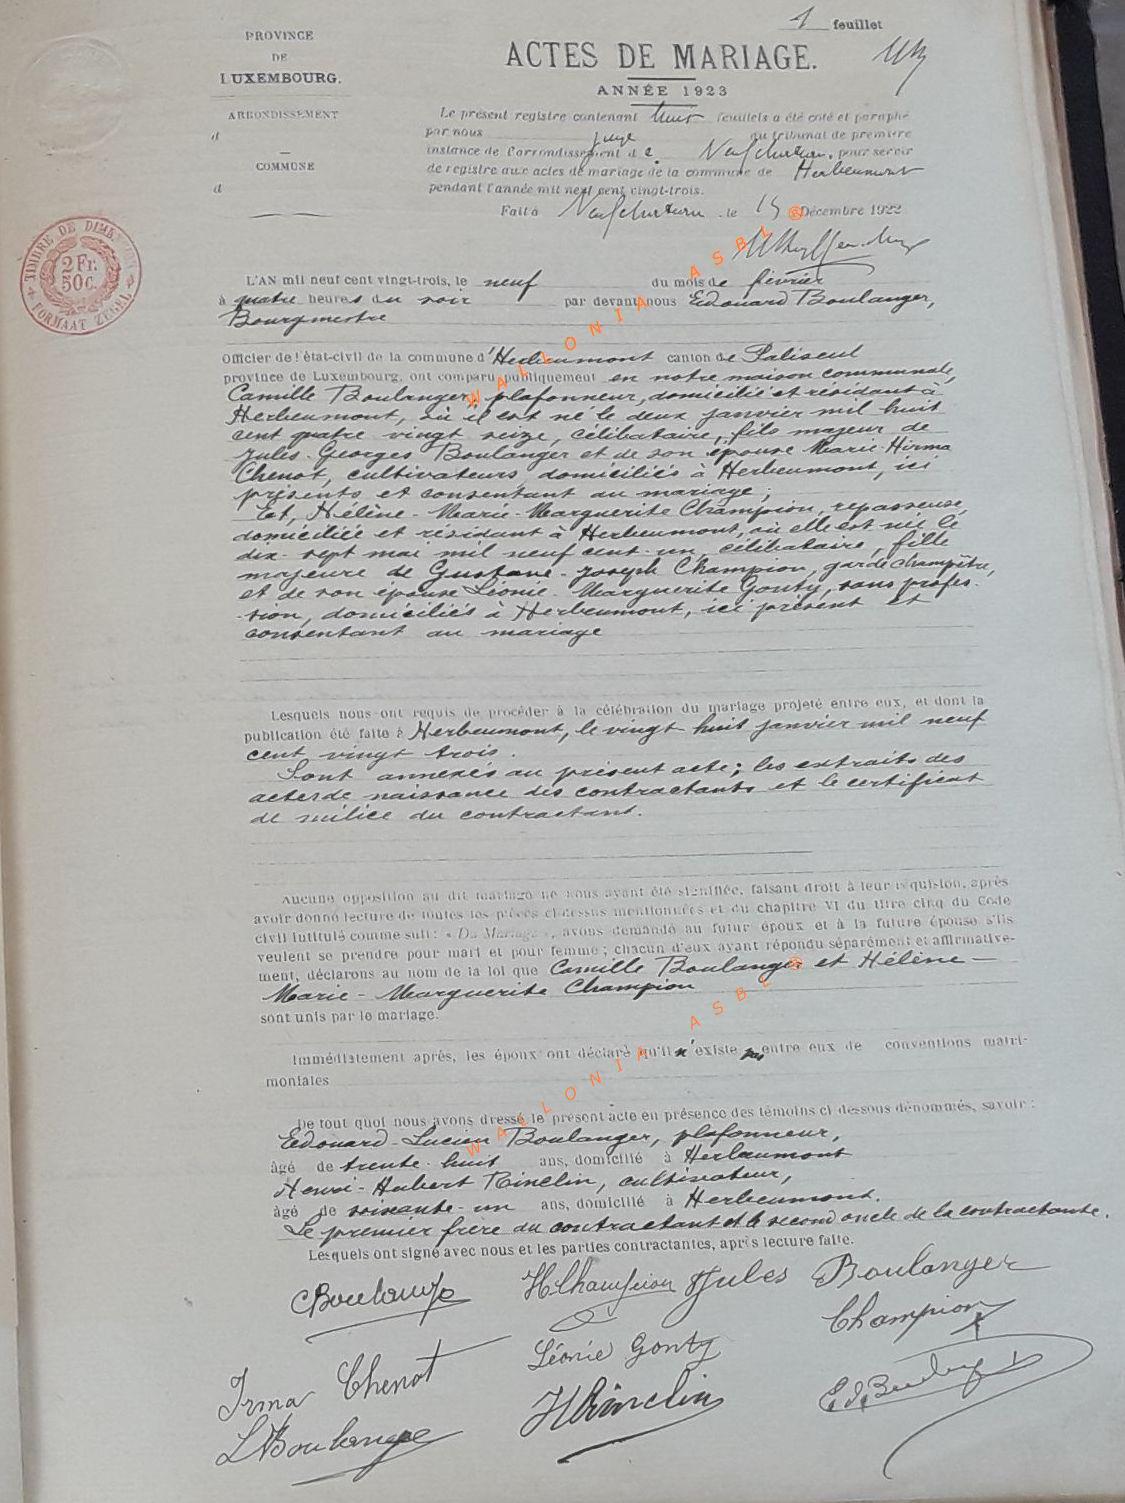 1 feuillet
PROVINCE
DE
LUXEMBOURG.
ACTES DE MARIAGE.
ANNÉE 1923
ARRONDISSEMENT
d
COMMUNE
d
Le présent registre contenant huit feuillets a été coté et paraphé
par nous juge au tribunal de première
instance de l'arrondissement de Neufchateau, pour servir
de registre aux actes de mariage de la commune de Herbeumont
pendant l'année mil neuf cent vingt-trois.
Fait à Neufchateau le 15 Décembre 1922
TIMBRE DE DIMENSION
2 Fr. 50 C.
FORMAAT ZEGEL
L'AN mil neuf cent vingt-trois, le neuf du mois de février
à quatre heures du soir par devant nous Edouard Boulanger,
Bourgmestre
Officier de l'état-civil de la commune d'Herbeumont canton de Paliseul
province de Luxembourg, ont comparu publiquement en notre maison communale,
Camille Boulanger, plafonneur, domicilié et résidant à
Herbeumont, où il est né le deux janvier mil huit
cent quatre vingt seize, célibataire, fils majeur de
Jules-Georges Boulanger et de son épouse Marie-Hirma
Chenot, cultivateurs, domiciliés à Herbeumont, ici
présents et consentant au mariage;
Et, Hélène-Marie-Marguerite Champion, repasseuse,
domiciliée et résidant à Herbeumont, où elle est née le
dix-sept mai mil neuf cent-un, célibataire, fille
majeure de Gustave-Joseph Champion, garde champêtre,
et de son épouse Léonie-Marguerite Gonty, sans profes-
sion, domiciliés à Herbeumont, ici présent et
consentant au mariage
Lesquels nous ont requis de procéder à la célébration du mariage projeté entre eux, et dont la
publication été faite à Herbeumont, le vingt huit janvier mil neuf
cent vingt trois.
Sont annexés au présent acte; les extraits des
actes de naissance des contractants et le certificat
de milice du contractant.
Aucune opposition au dit mariage ne nous ayant été signifiée, faisant droit à leur réquision, après
avoir donné lecture de toutes les pièces ci-dessus mentionnées et du chapitre VI du titre cinq du Code
civil intitulé comme suit: « Du Mariage », avons demandé au futur époux et à la future épouse s'ils
veulent se prendre pour mari et pour femme; chacun d'eux ayant répondu séparément et affirmative-
ment, déclarons au nom de la loi que Camille Boulanger et Hélène-
Marie-Marguerite Champion
sont unis par le mariage.
Immédiatement après, les époux ont déclaré qu'il n'existe pas entre eux de conventions matri-
moniales
De tout quoi nous avons dressé le présent acte en présence des témoins ci dessous dénommés, savoir:
Edouard-Lucien Boulanger, plafonneur,
âgé de trente-huit ans, domicilié à Herbeumont
Henri-Hubert Rinclin, cultivateur,
âgé de soixante-un ans, domicilié à Herbeumont.
Le premier frère du contractant et le second oncle de la contractante.
Lesquels ont signé avec nous et les parties contractantes, après lecture faite.
CBoulanger HChampion Jules Boulanger
Champion
Irma Chenot Léonie Gonty
LBoulanger HRinclin Ed. Boulanger
WALLONIA ASBL ®
WALLONIA ASBL ®